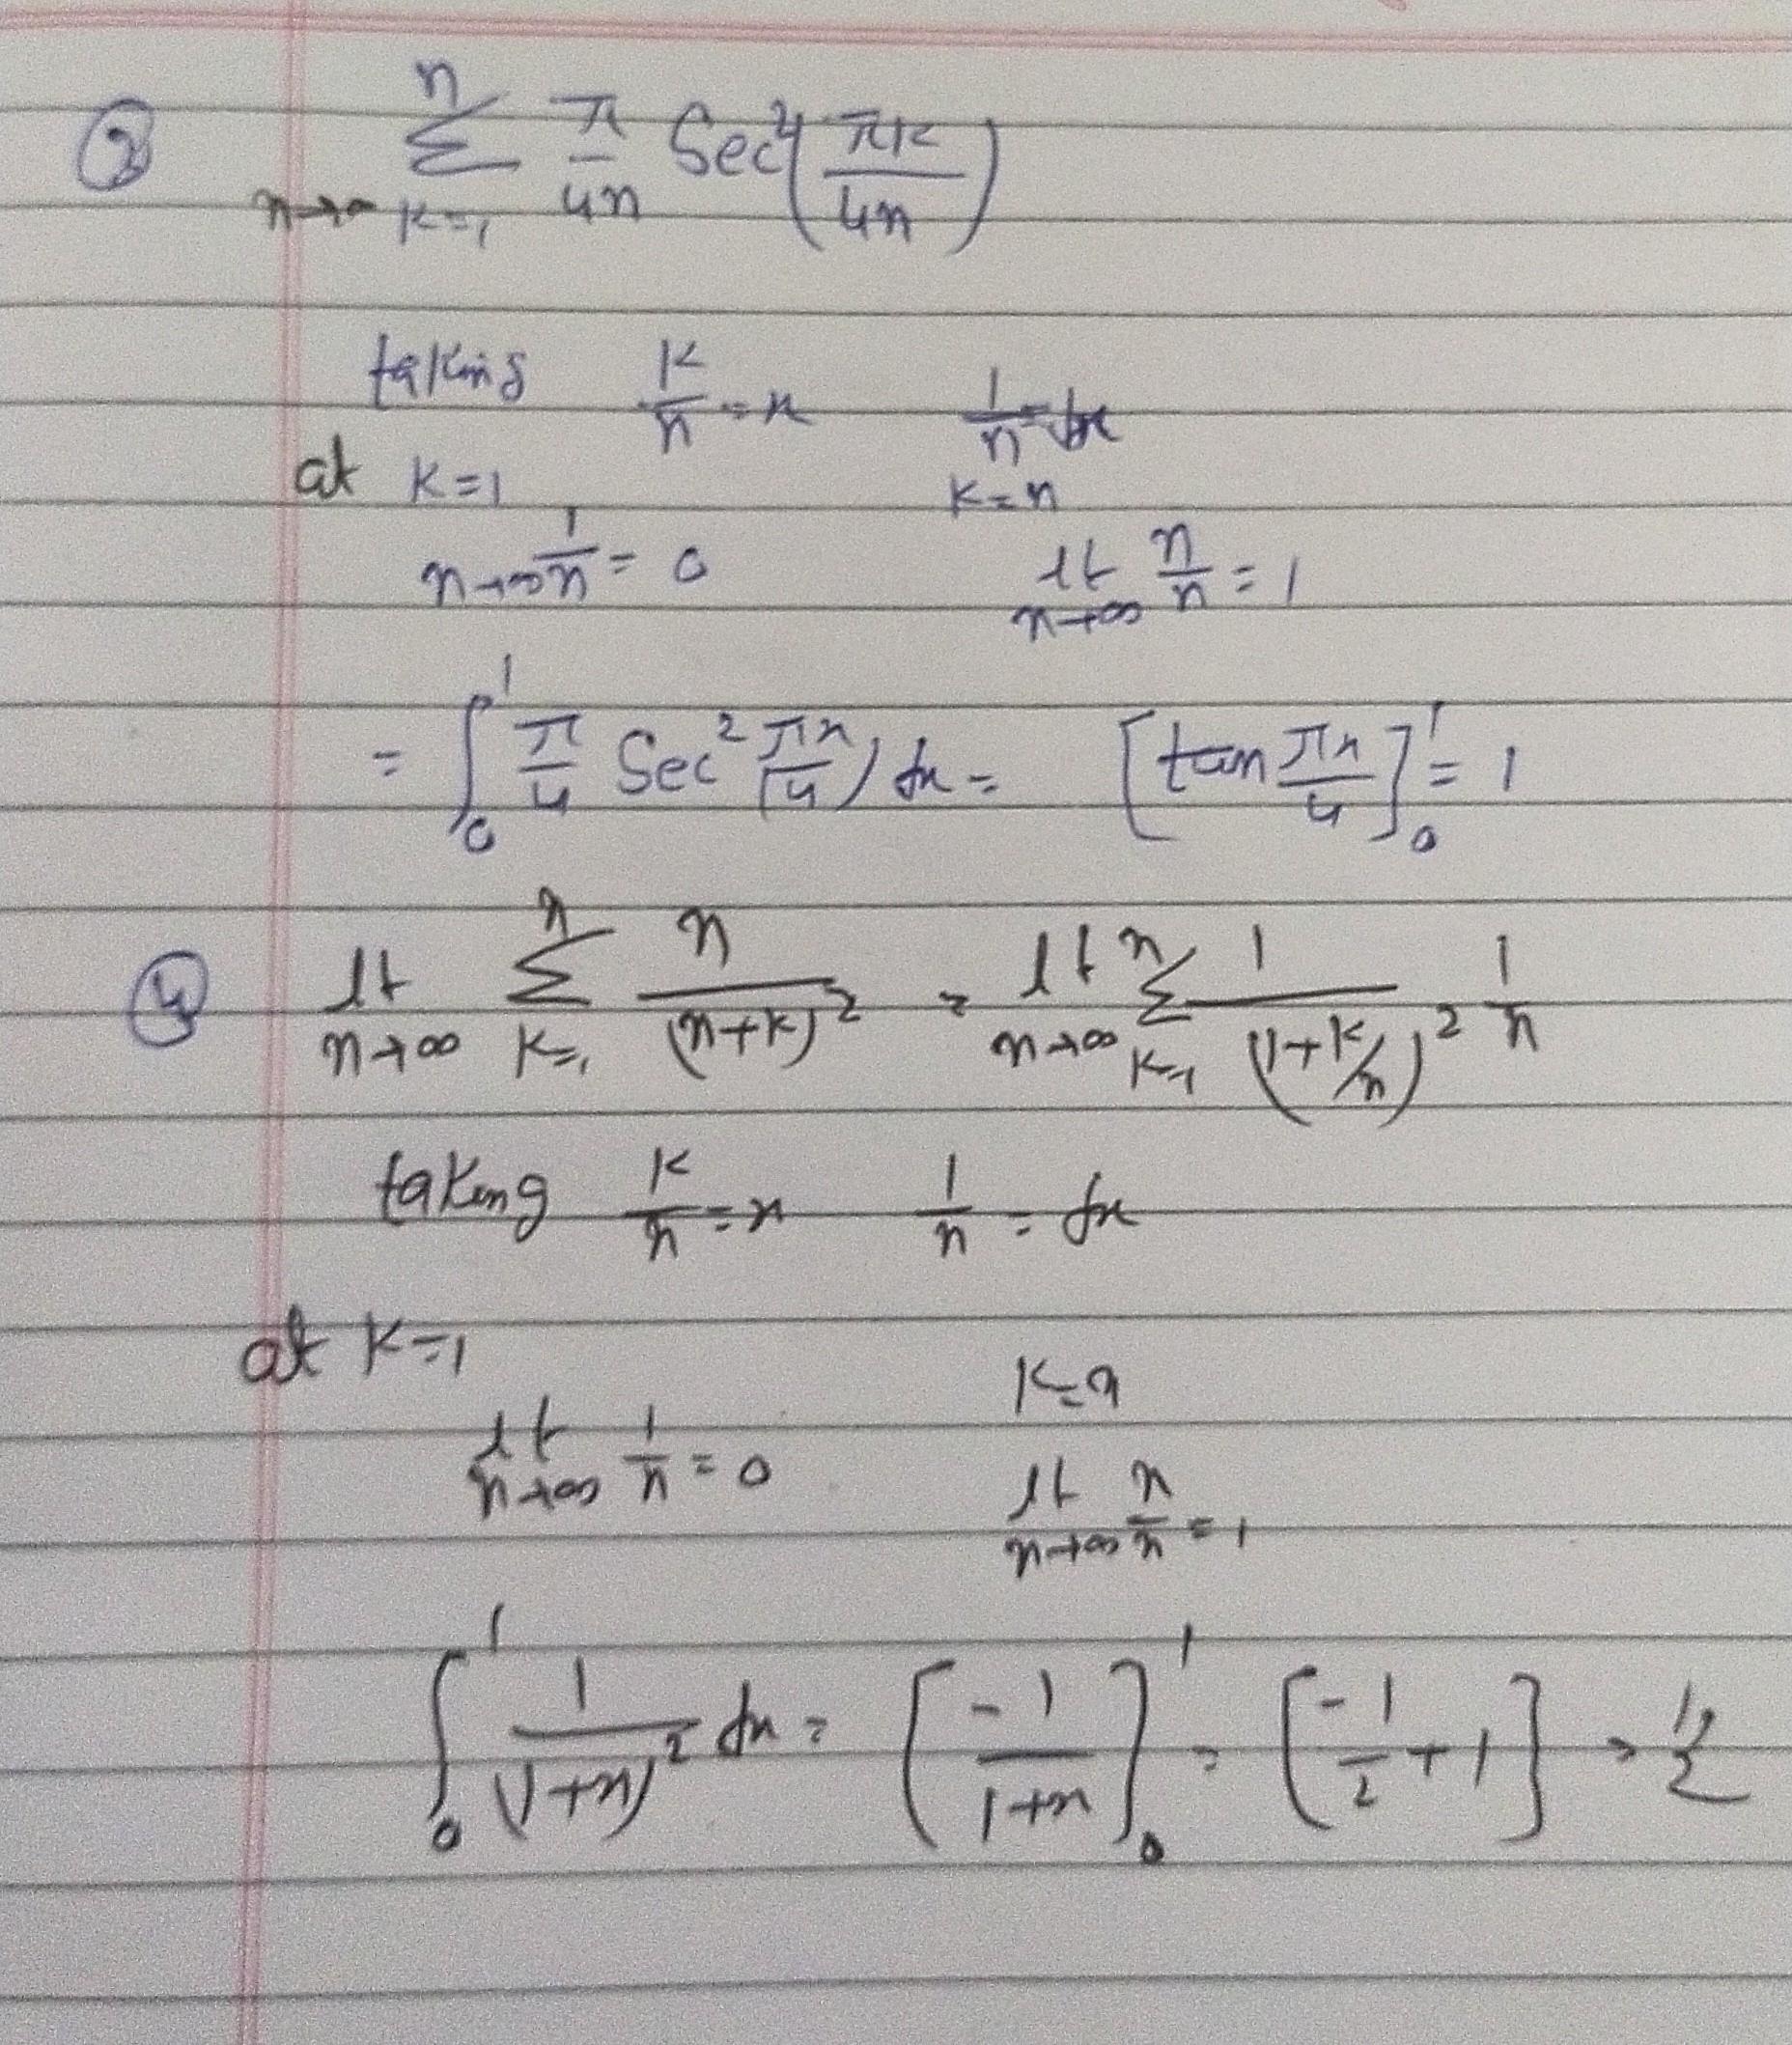 ③ n→∞ Σ_{k=1}^{n} π/4n Sec²(πk/4n)
taking k/n = x 1/n = dx
at k=1 k=n
n→∞ 1/n = 0 lt n→∞ n/n = 1
= ∫₀¹ π/4 Sec² (πx/4) dx = [tan πx/4]₀¹ = 1
④ lt n→∞ Σ_{k=1}^{n} n/(n+k)² = lt n→∞ Σ_{k=1}^{n} 1/(1+k/n)² 1/n
taking k/n = x 1/n = dx
at k=1 k=n
lt n→∞ 1/n = 0 lt n→∞ n/n = 1
∫₀¹ 1/(1+x)² dx = [-1/(1+x)]₀¹ = [-1/2 + 1] = 1/2